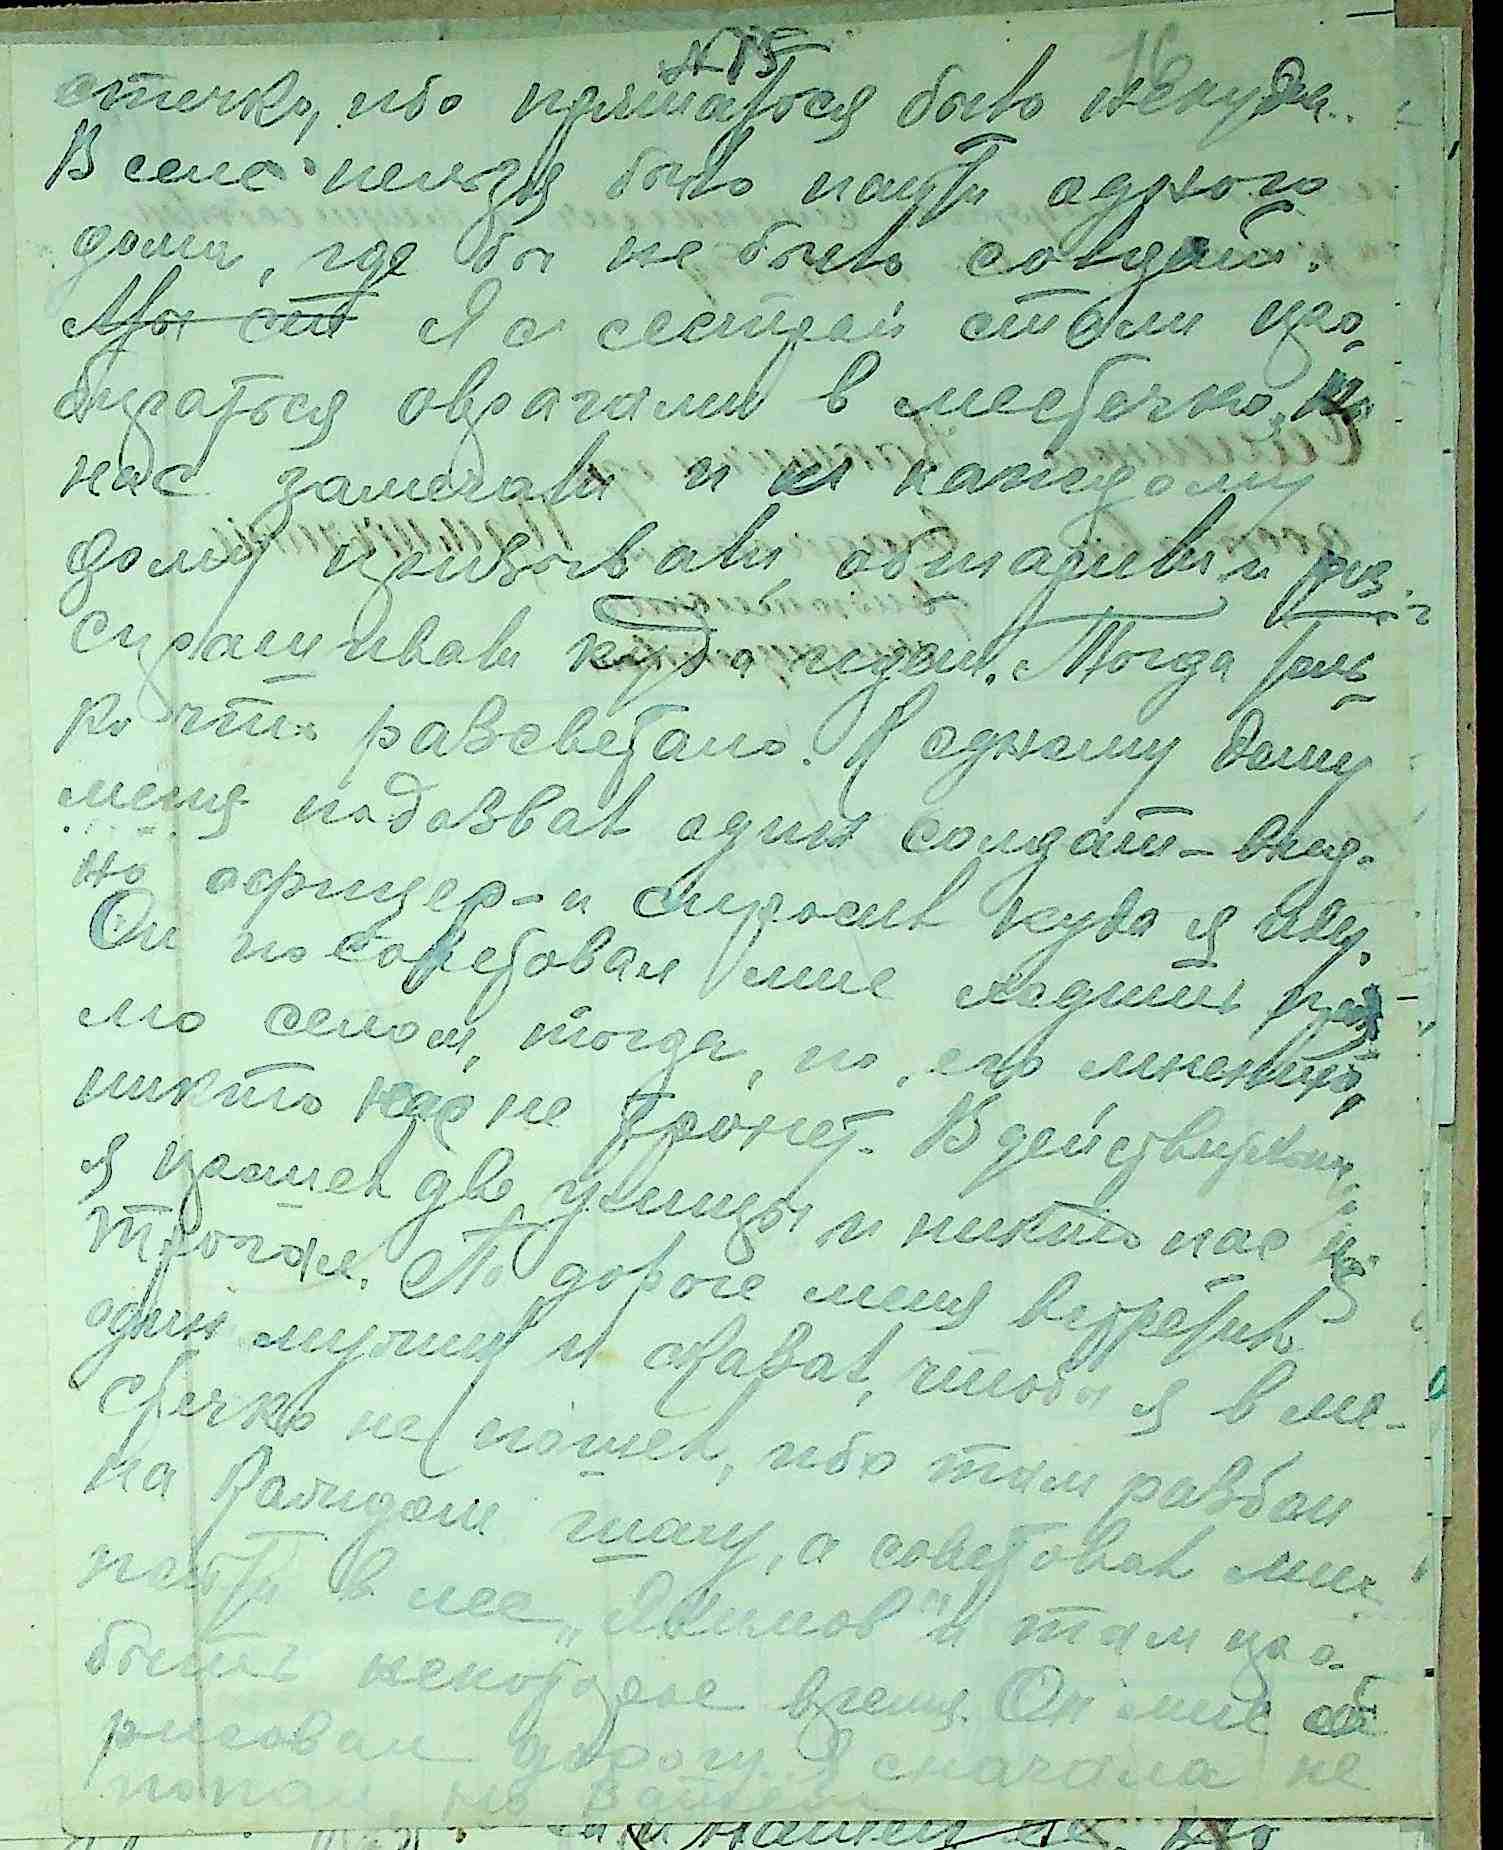 № 15
16
стечко, ибо прятаться было некуда.
В селе нельзя было найти одного
дома, где бы не было солдат.
Мы ст Я с сестрой стали про-
бираться оврагами в местечко. Но
нас замечали и к каждому
дому призывали, обшарили и рас-
спрашивали куда идем. Тогда толь-
ко что разсветало. К одному дому
меня подозвал один солдат – вид-
но офицер – и спросил куда я иду.
Он посоветовал мне ходить пря-
мо селом, тогда, по его мнению,
никто нас не тронет. В действительн.
я прошел две улицы и никто нас не
тронул. По дороге меня встретил
один мужик и сказал, чтобы я в ме-
стечко не пошел, ибо там разбои
на каждом шагу, а советовал мне
пойти в лес „Якимов“ и там про-
быть некоторое время. Он мне об
рисовал дорогу. Я сначала не
попал, но затем